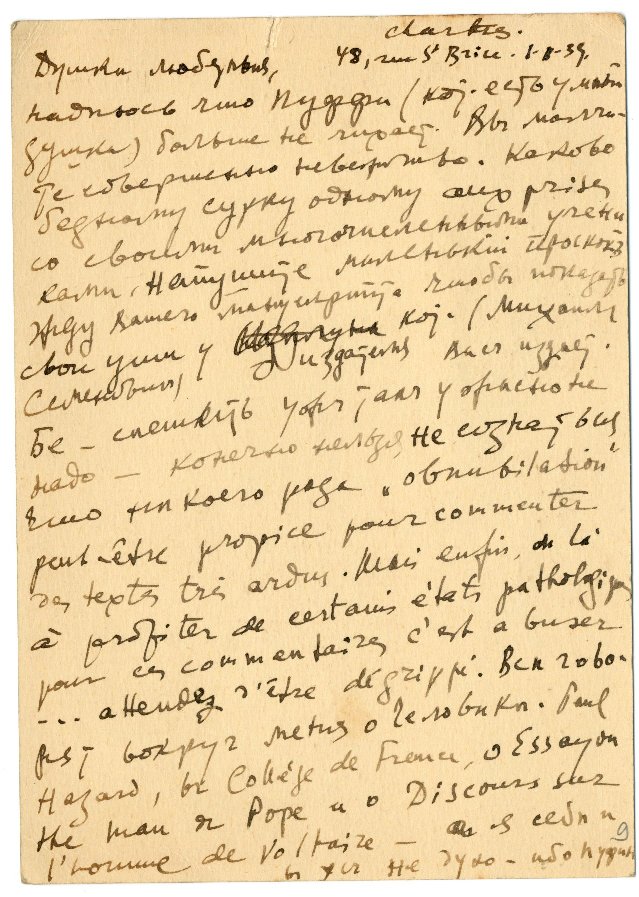 Chartres.
48, rue St Brice. 1-II-39.
Душки любезныя,
надеюсь что Пуффи (кой. есть умный
душка) больше не чихает. Вы молчи-
те совершенно невежливо. Каково
бедному сурку одному aux prises
со своими многочисленными учени-
ками. Напишите маленький
Жду вашего чтобы показать
свои уши у кой. (Михаил
Семенович) издателя
Бе - спешить
надо - конечно нельзя не сознаться
что некоего рода "obnubilation"
peut-être propice pour commenter
des textes très ardus. Mais enfin, de là
à profiter de certains états pathologiques
pour ces commentaires c'est abuser
--- attendez d'être dégrippé. Все гово-
рят вокруг меня о Человеке. Paul
Hazard, в Collège de France, о Essay on
the man de Pope и о Discours sur
l'homme de Voltaire - а я себя и
в ус не дую - ибо
9